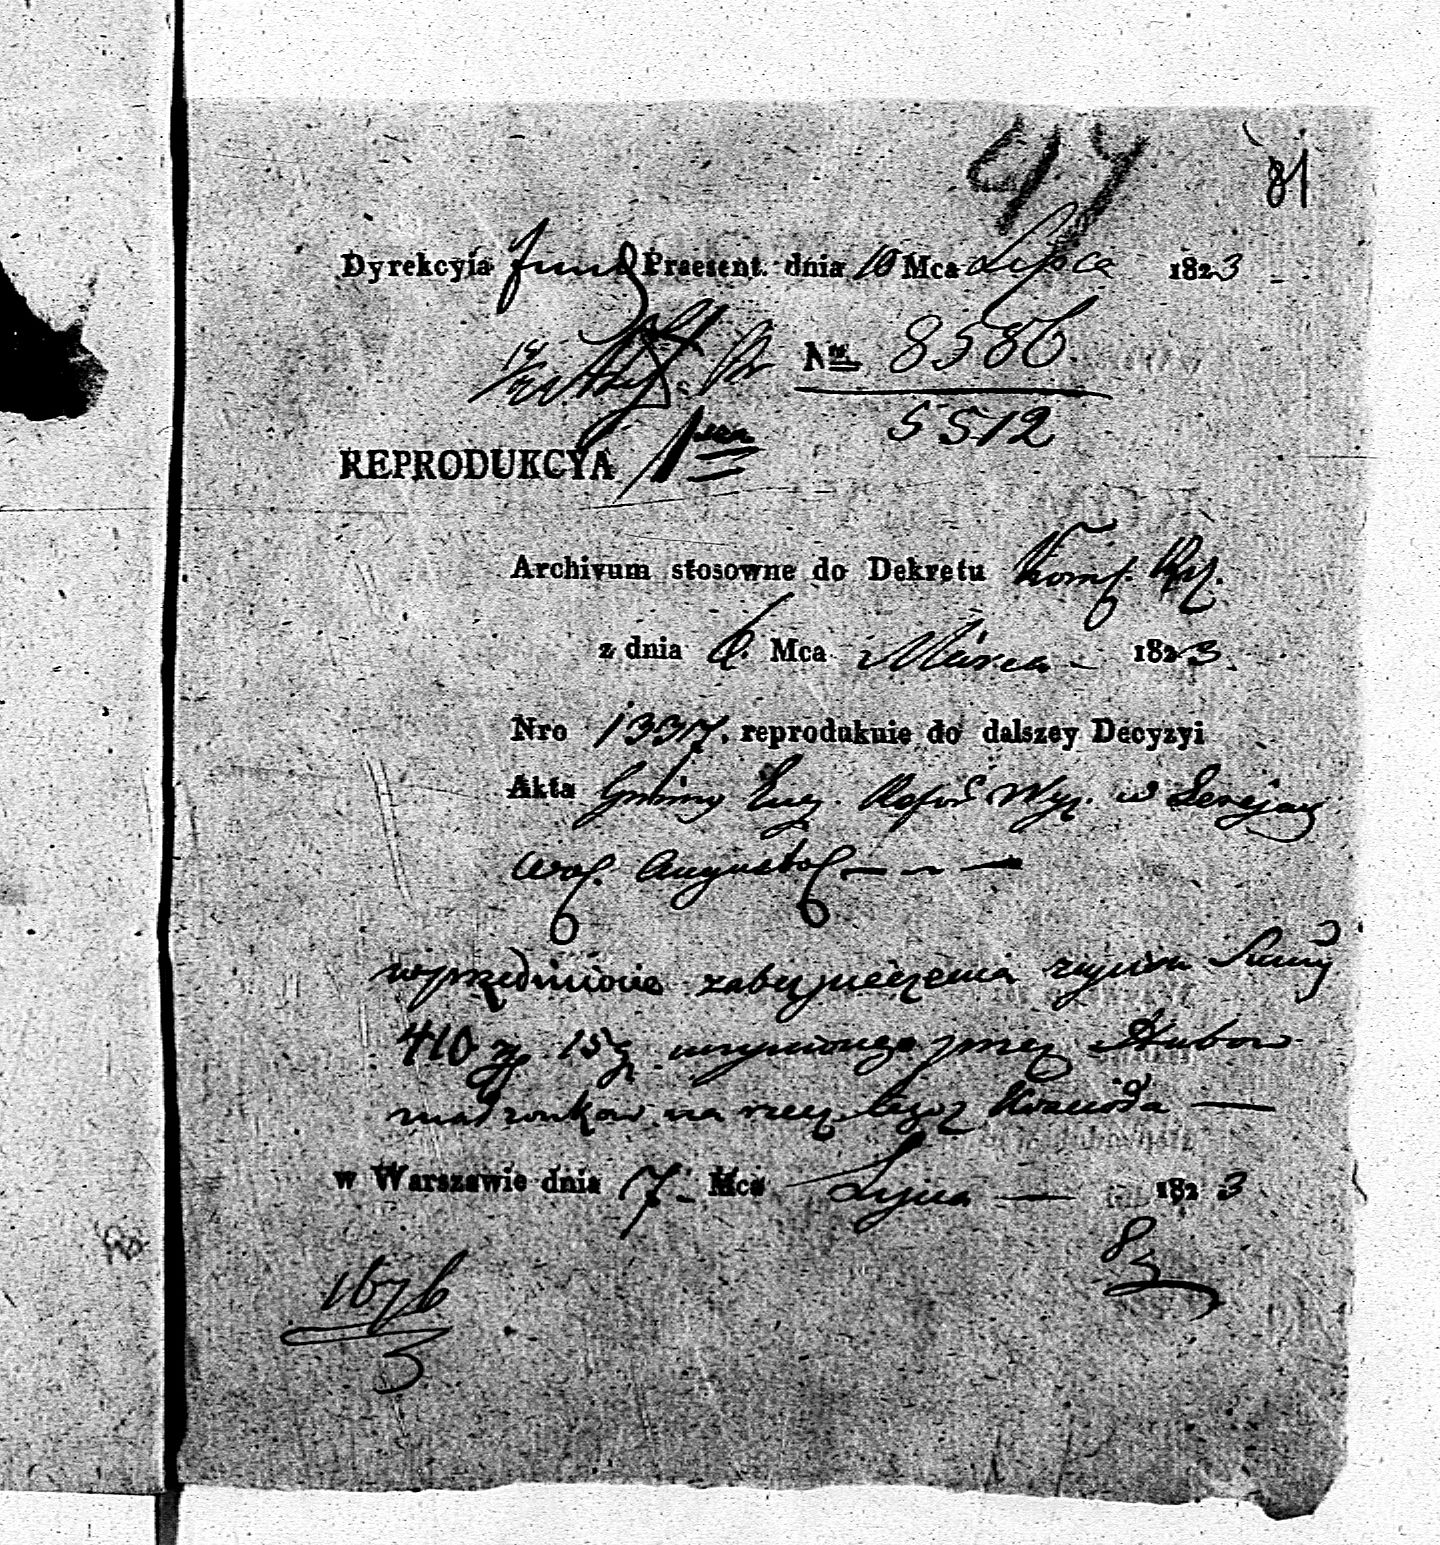 47 81
Dyrekcyia Fund Praesent. dnia 10 Mca Lipca 1823
Nro 8586
5512
REPRODUKCYA 1sza
Archivum stosowne do Dekretu Koms. Rz.
z dnia 6. Mca Marca 1823
Nro 1337. reprodukuie do dalszey Decyzyi
Akta Gminy Ew. Refor. Wyz. w Serejach
Woj. Augustow
w przedmiocie zabezpieczenia Summy
410 zł 15 g przez
małżonków na rzecz tegoż Kościoła
w Warszawie dnia 7 Mca Lipca 1823
1676